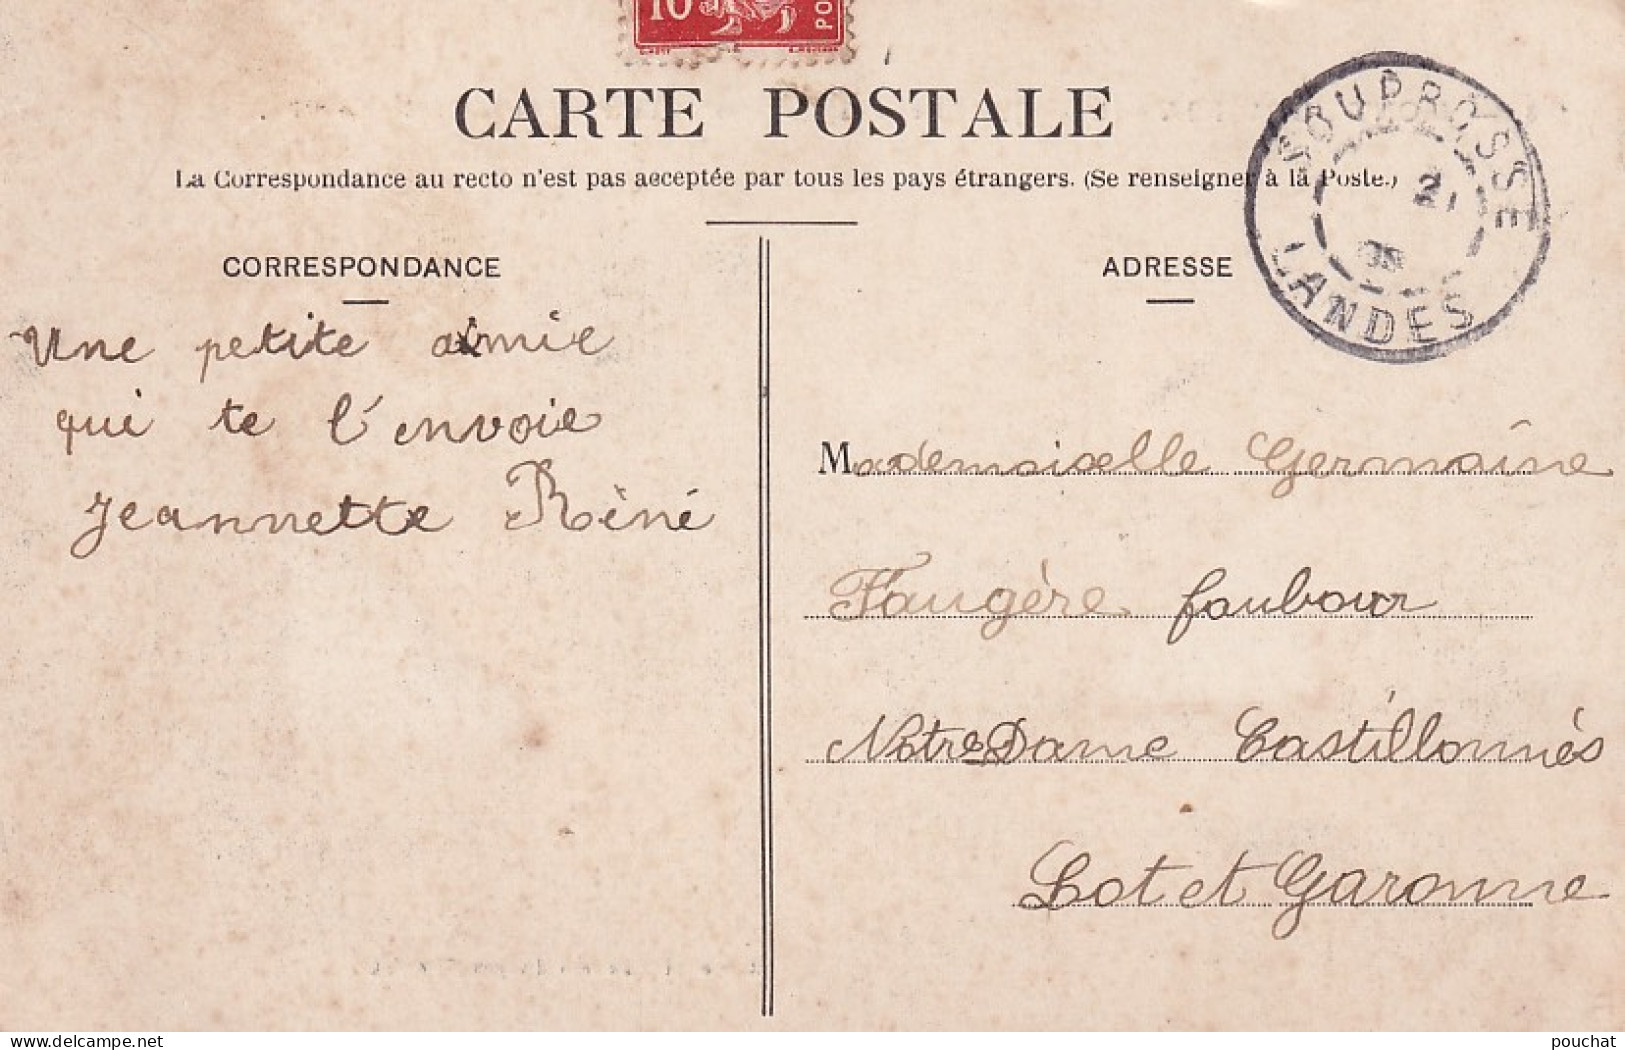 10
CARTE POSTALE
La Correspondance au recto n'est pas acceptée par tous les pays étrangers. (Se renseigner à la Poste.)
SOUPROSSE
21
LANDES
CORRESPONDANCE
ADRESSE
Une petite aimie
qui te l'envoie
Jeannette Rèné
Mademoiselle Germaine
Faugère faubour
Notre Dame Castillonnés
Lot et Garonne
delcampe.net
pouchat